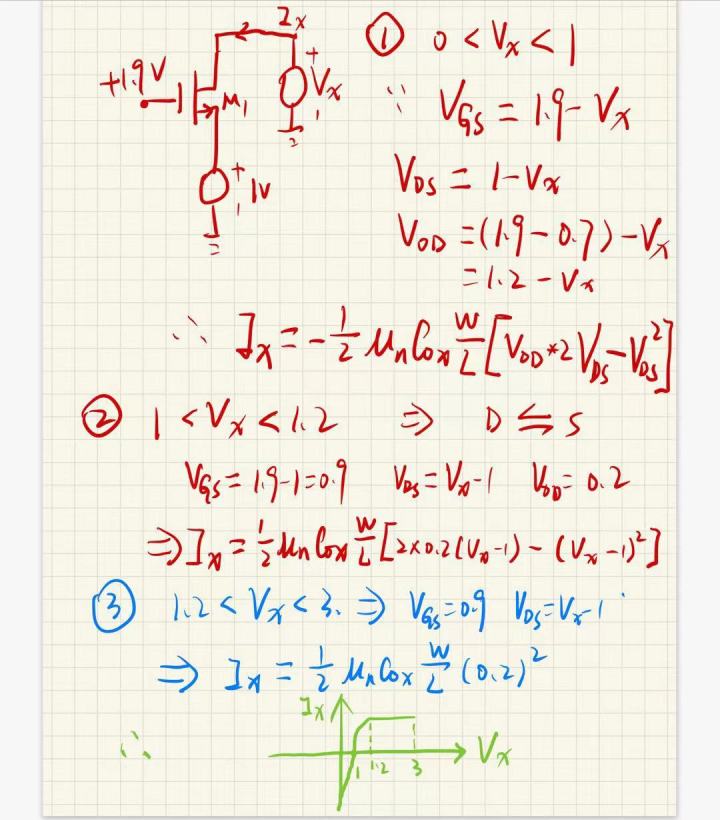 +1.9V
M₁
I_x
+
V_x
-
+
1V
-
① 0 < V_x < 1
∵ V_GS = 1.9 - V_x
V_DS = 1 - V_x
V_OD = (1.9 - 0.7) - V_x
= 1.2 - V_x
∴ I_x = -1/2 μ_n C_ox W/L [V_OD * 2 V_DS - V_DS²]
② 1 < V_x < 1.2 ⇒ D ⇆ S
V_GS = 1.9 - 1 = 0.9 V_DS = V_x - 1 V_OD = 0.2
⇒ I_x = 1/2 μ_n C_ox W/L [2×0.2(V_x - 1) - (V_x - 1)²]
③ 1.2 < V_x < 3. ⇒ V_GS = 0.9 V_DS = V_x - 1
⇒ I_x = 1/2 μ_n C_ox W/L (0.2)²
∴
I_x
V_x
1 1.2 3